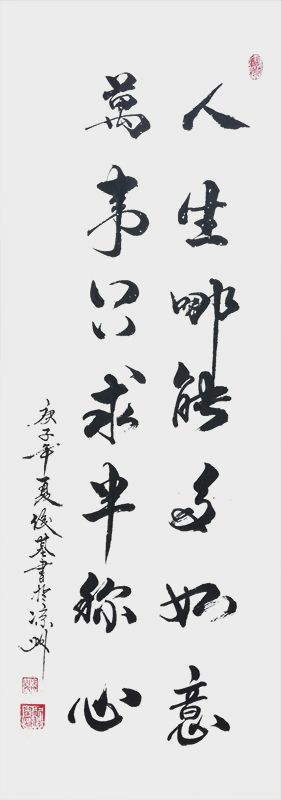 人生哪能多如意
萬事只求半称心
庚子年夏俊基書於凉州